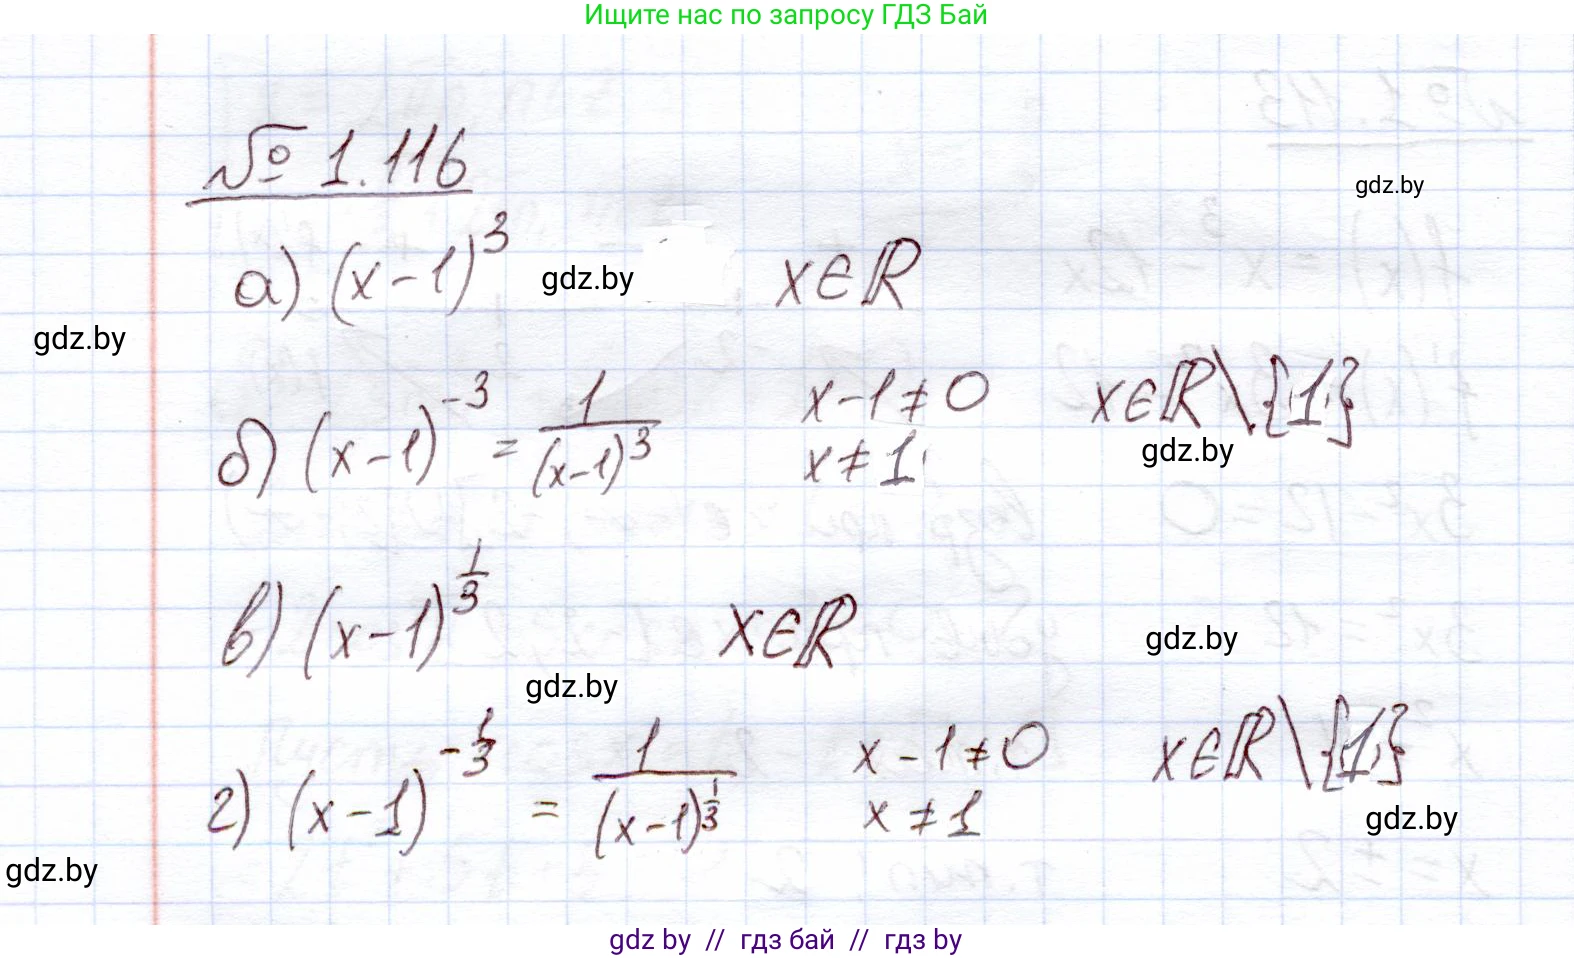 Ищите нас по запросу ГДЗ Бай
№ 1.116
gdz.by
а) (x-1)^3 gdz.by x∈ℝ
gdz.by
б) (x-1)^{-3} = 1/(x-1)^3 x-1≠0 x∈ℝ\{1}
x≠1 gdz.by
в) (x-1)^{1/3} x∈ℝ gdz.by
gdz.by
г) (x-1)^{-1/3} = 1/(x-1)^{1/3} x-1≠0 x∈ℝ\{1}
x≠1 gdz.by
gdz.by
gdz by // гдз бай // гдз by